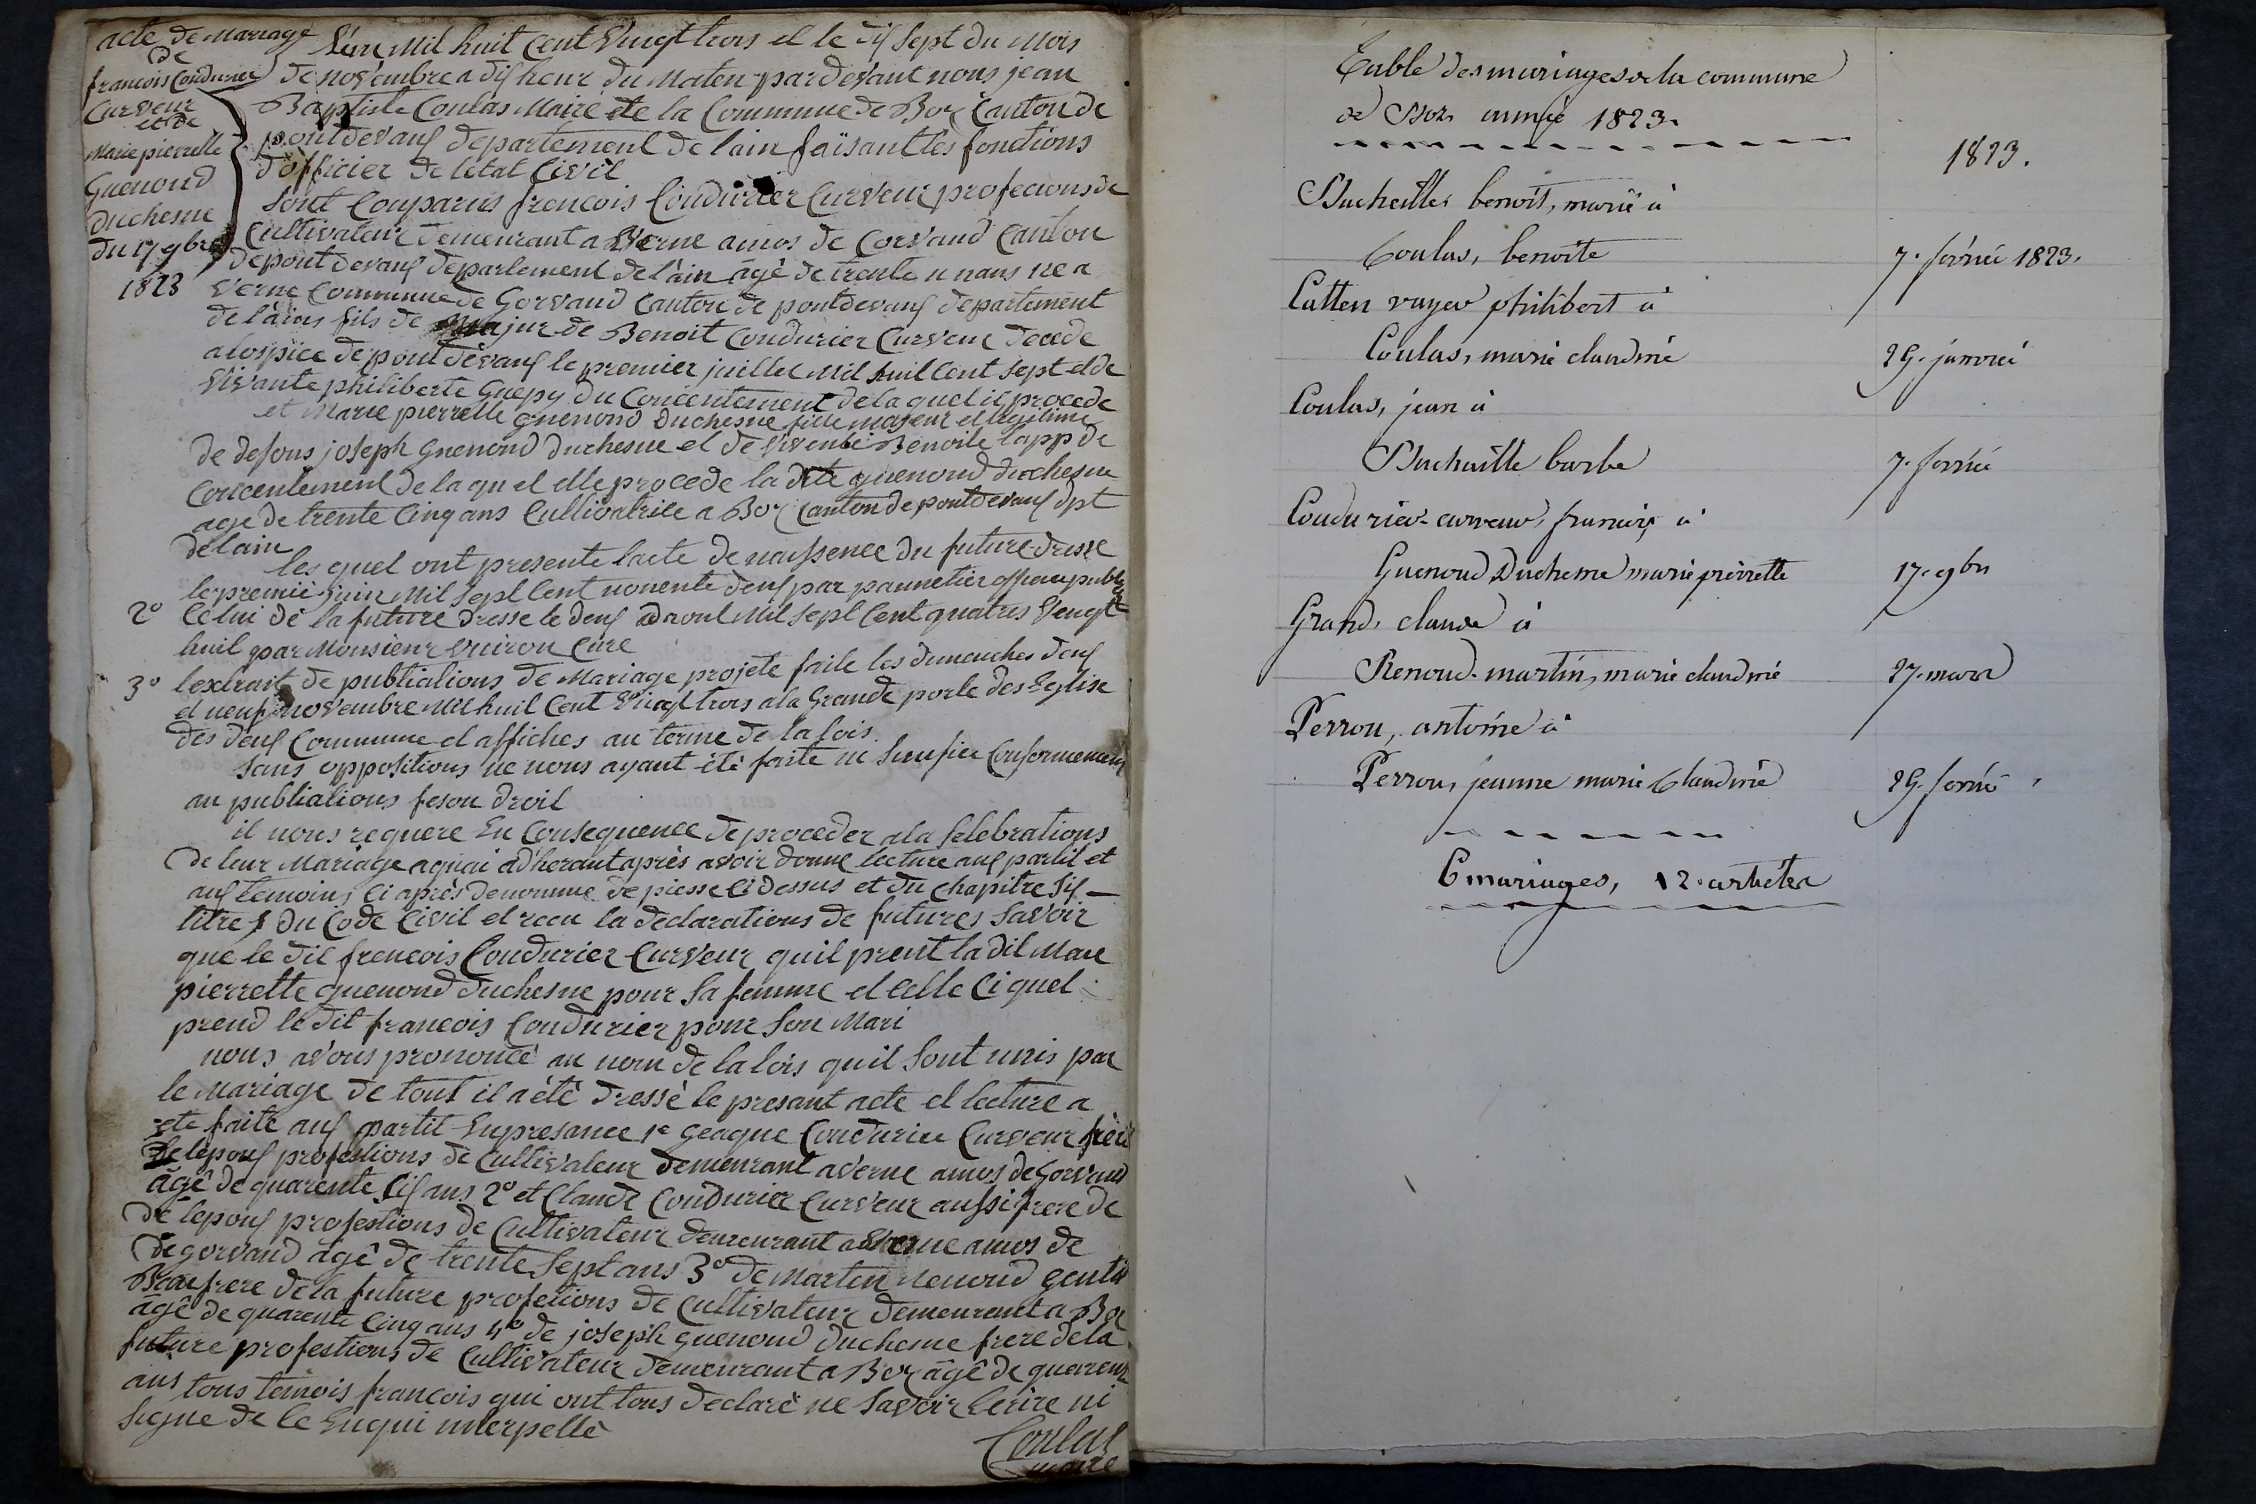 acte de Mariage
de
francois Condurier
Curveur
et de
Marie pierrelle
Guenond
Duchesne
du 17 9bre
1823
L'an Mil huit Cent Vingt trois et le dis sept du Mois
de novembre a dis heur du Maten par devant nous jean
Baptiste Coulas Maire de la Commune de Boz Canton de
pontdevaus departement de lain faisant les fonctions
d'officier de letat Civil
Sont Comparus francois Condurier Curveur profecions de
Cultivateur demeurant a Verne amos de Corvaud Canton
de pont devaus departement de l'ain âgé de trente u nans ne a
Verne Commune de Gorvaud Canton de pontdevaus departement
de l'ain fils de Majur de Benoit Condurier Curveur decede
alospice de pont devaus le premier juillet Mil huit Cent Sept et de
Vivante philiberte Guepy du Concentement de la quel il procede
et Marie pierrelle Guenond Duchesne fille majeur et legitime
de defous joseph Guenond Duchesne et de vivente Benoite lapp de
Concentement de la quel elle procede la dite guenond duchesne
age de trente Cinq ans Cultivatrice a Boz Canton de pontdevaus dpt
de lain
les quel ont presente lacte de naissence du future dresse
le premie juin Mil Sept Cent nonente deus par pannetier officie public
2º Celui de la future dresse le deus daout Mil Sept Cent quatres Vengt
huit par Monsieur Vuiron Cure
3º lextrait de publications de Mariage projete faite les dimenches deus
et neuf novembre Mil huit Cent Vingt trois a la Grande porte des Eglise
des deus Commune et affiches au terme de la lois
Sans oppositions ne nous ayant été faite ni Sinufice Conformement
au publications feson droit
il nous requere En Consequence de proceder a la Selebrations
de leur Mariage aquai adherant après avoir donne lecture aus partil et
aus temoins Ci après denomme de piesse Ci dessus et du Chapitre Sis
titre 5 du Code Civil et recu la declarations de futures Savoir
que le dit francois Condurier Curveur quil prent la dit Marie
pierrette guenond duchesne pour Sa femme et Celle Ci quel
prend le dit francois Condurier pour Son Mari
nous avons prononcé au nom de la lois quil Sont unis par
le Mariage de tout il a été dressé le presant acte et lecture a
ete faite aus partit En presance 1e Geaque Condurier Curveur frère
de lepous profestions de Cultivateur demeurant a Verne amos de Gorvaud
âgê de quarente Sis ans 2º et Claude Condurier Curveur aussi frere de
de lepous profestions de Cultivateur demeurant a Verne amos de
de gorvaud âgê de trente Sept ans 3º de Marten renoud gentit
Beau frere de la future profetions de Cultivateur demeurent a Boz
âgê de quarente Cinq ans 4º de joseph guenoud duchesne frere de la
future profestions de Cultivateur demeurant a Boz âgê de quarente
ans tous temois francois qui ont tous declaré ne Savoir Ecrire ni
Signe de Ce Enqui interpellè
Coulas
maire
Table des mariages de la commune
de Boz. année 1823.
1823.
Bucheille benoit, marié à
Coulas, benoite 7. février 1823.
Catten voyer philibert à
Coulas, marie claudine 29. janvier
Coulas, jean à
Bucheille barbe 7. février
Condurier-curveur, francois à
Guenoud Duchesne marie pierrette 17. 9bre
Grand, claude à
Renoud-martin, marie claudine 27. mars
Perrou, antoine à
Perrou, jeanne marie Claudine 29. février
6 mariages, 12. articles